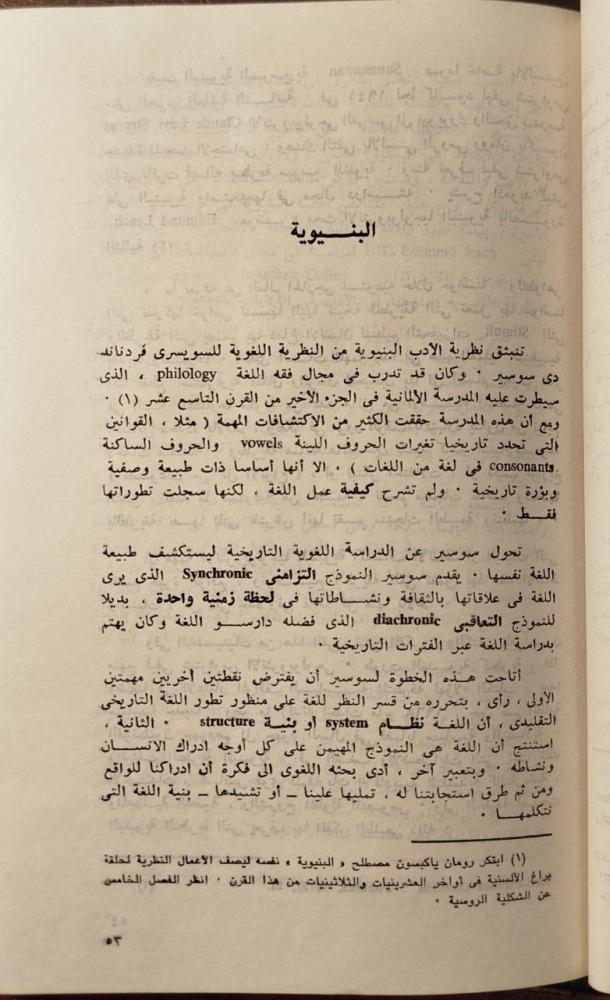 البنـــيوية
تنبثق نظرية الأدب البنيوية من النظرية اللغوية للسويسرى فردناند
دى سوسير ٠ وكان قد تدرب فى مجال فقه اللغة philology ، الذى
سيطرت عليه المدرسة الألمانية فى الجزء الأخير من القرن التاسع عشر (١) ٠
ومع أن هذه المدرسة حققت الكثير من الاكتشافات المهمة ( مثلا ، القوانين
التى تحدد تاريخيا تغيرات الحروف اللينة vowels والحروف الساكنة
consonants فى لغة من اللغات ) ، الا أنها أساسا ذات طبيعة وصفية
وبؤرة تاريخية ٠ ولم تشرح كيفية عمل اللغة ، لكنها سجلت تطوراتها
فقــط ٠
تحول سوسير عن الدراسة اللغوية التاريخية ليستكشف طبيعة
اللغة نفسها ٠ يقدم سوسير النموذج التزامنى Synchronic الذى يرى
اللغة فى علاقاتها بالثقافة ونشــاطاتها فى لحظة زمنية واحدة ، بديلا
للنموذج التعاقبى diachronic الذى فضله دارســو اللغة وكان يهتم
بدراسة اللغة عبر الفترات التاريخية ٠
أتاحت هــذه الخطوة لسوسير أن يفترض نقطتين أخريين مهمتين
الأولى ، رأى ، بتحرره من قسر النظر للغة على منظور تطور اللغة التاريخى
التقليدى ، أن اللغــة نظــام system أو بنيــة structure ٠ الثانية ،
استنتج أن اللغة هى النموذج المهيمن على كل أوجه ادراك الانســان
ونشاطه ٠ وبتعبير آخر ، أدى بحثه اللغوى الى فكرة أن ادراكنا للواقع
ومن ثم طرق استجابتنا له ، تمليها علينا ــ أو تشيدها ــ بنية اللغة التى
نتكلمهــا ٠
(١) ابتكر رومان ياكبسون مصطلح « البنيوية » نفسه ليصف الأعمال النظرية لحلقة
براغ الألسنية فى أواخر العشرينيات والثلاثينيات من هذا القرن ٠ انظر الفصل الخامس
عن الشكلية الروسية ٠
٥٣